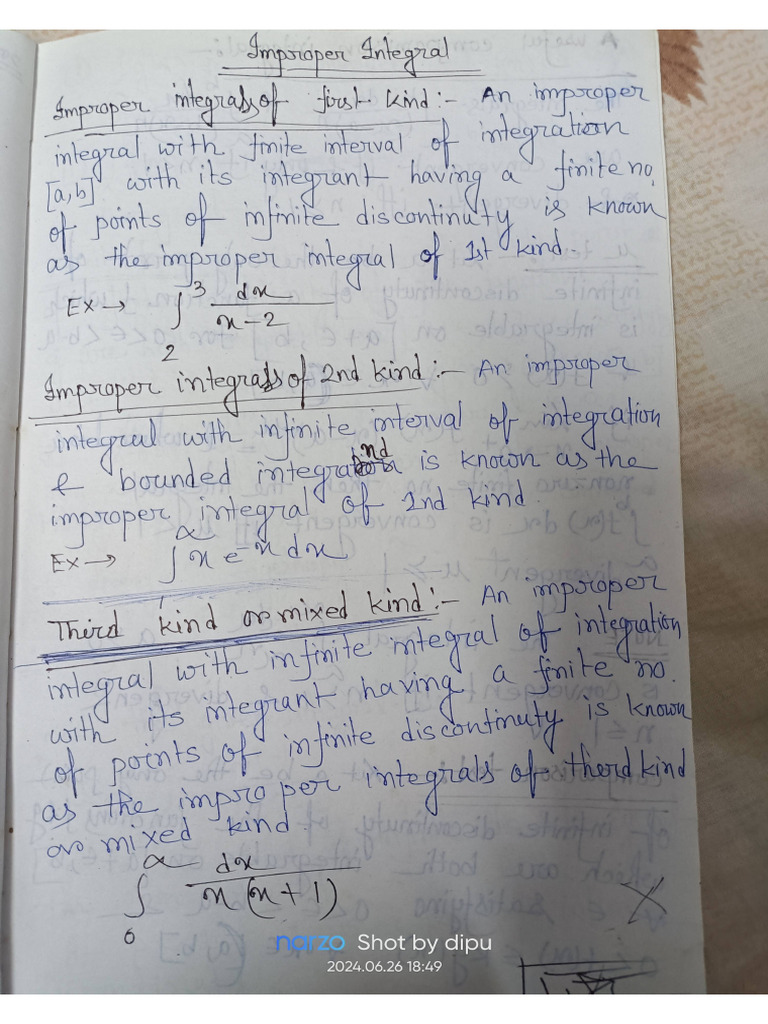 Improper Integral
Improper integrals of first kind:- An improper
integral with finite interval of integration
[a,b] with its integrant having a finite no.
of points of infinite discontinuty is known
as the improper integral of 1st kind.
Ex → ∫₂³ dx/(x-2)
Improper integrals of 2nd kind:- An improper
integral with infinite interval of integration
& bounded integrand is known as the
improper integral of 2nd kind.
Ex → ∫^∝ x e^-x dx
Third kind or mixed kind:- An improper
integral with infinite integral of integration
with its integrant having a finite no.
of points of infinite discontinuty is known
as the improper integrals of therd kind
or mixed kind.
∫₀^∝ dx/(x(x+1))
narzo Shot by dipu
2024.06.26 18:49